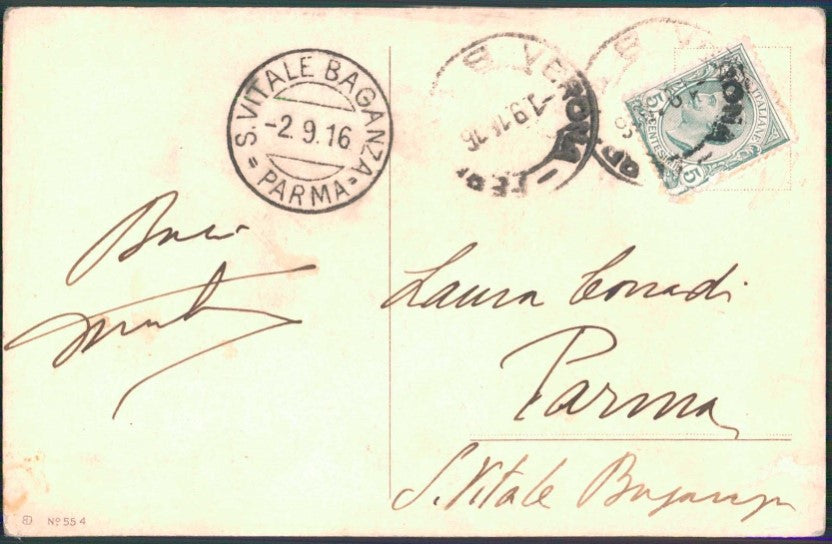 S. VITALE BAGANZA
-2.9.16
=PARMA=
VERONA
-1.9.16
ITALIANE
5 CENTESIMI 5
Baci
Laura Corradi
Parma
S. Vitale Baganza
Nº 55 4